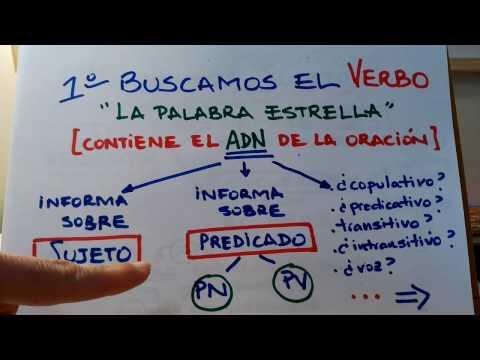 1º BUSCAMOS EL VERBO
"LA PALABRA ESTRELLA"
[CONTIENE EL ADN DE LA ORACIÓN]
INFORMA
SOBRE
SUJETO
INFORMA
SOBRE
PREDICADO
PN
PV
.¿copulativo?
.¿predicativo?
.transitivo?
.¿intransitivo?
.¿voz?
... ⇒